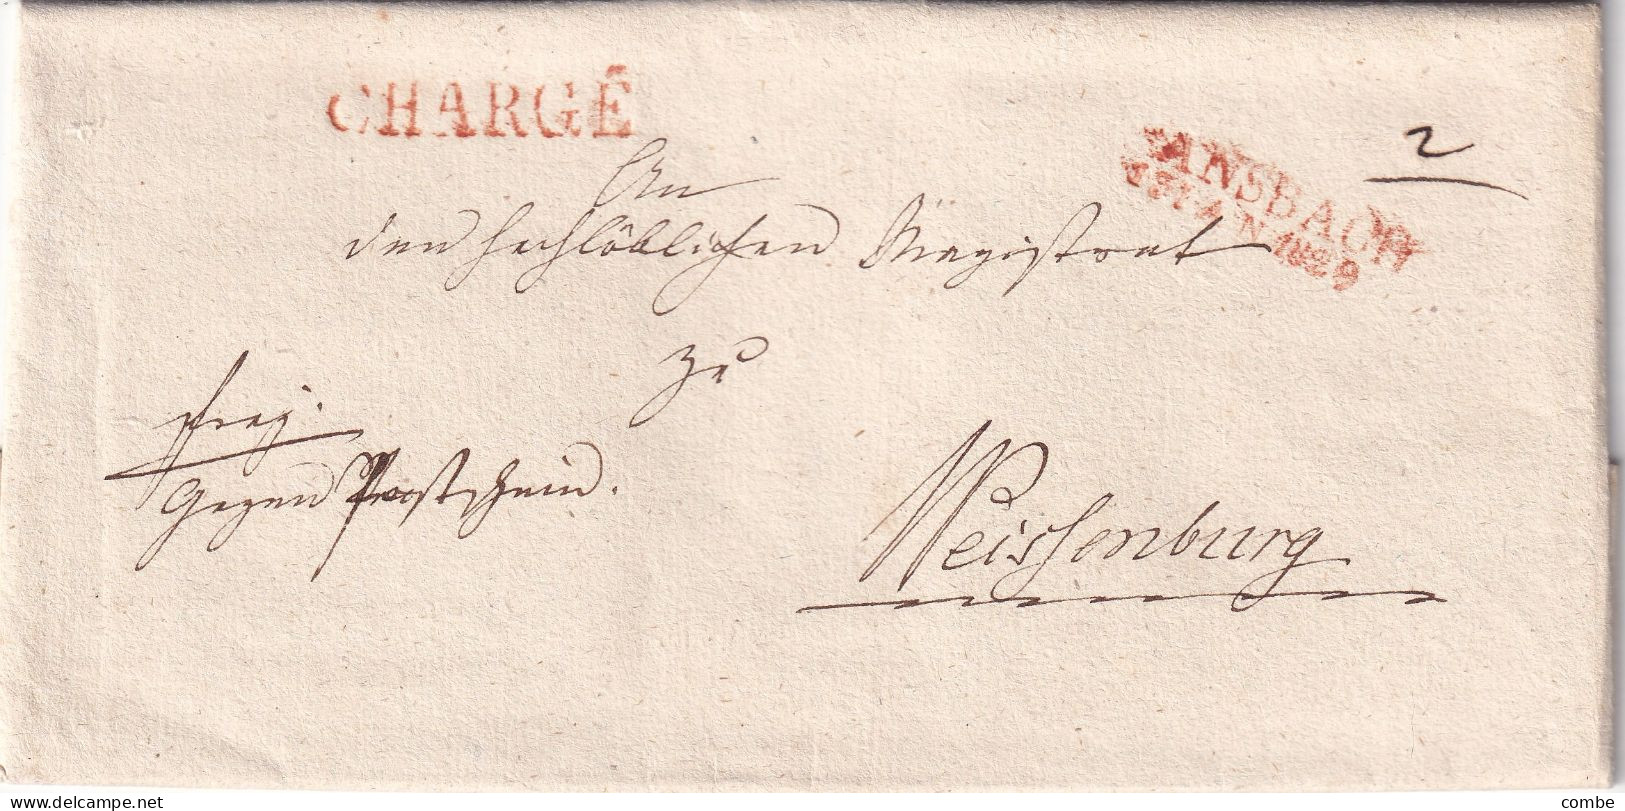 CHARGÉ
ANSBACH
JAN 1829
2
An
den hochlöblichen Magistrat
zu
frey.
gegen Postschein.
Weissenburg
www.delcampe.net
combe